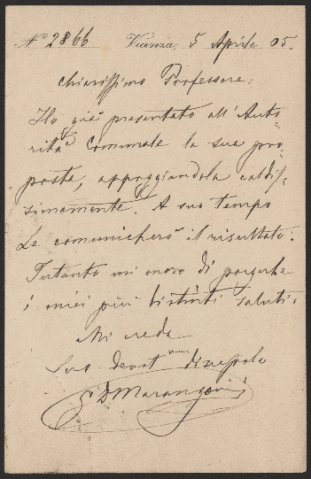 N° 2866 Vicenza, 5 Aprile 05.
Chiarissimo Professore,
Ho già presentato all'Auto-
rità Comunale la sua pro-
posta, appoggiandola caldis-
simamente. A suo tempo
Le comunicherò il risultato.
Intanto mi onoro di porgerle
i miei più distinti saluti.
Mi creda
Suo devot.mo discepolo
G D Marangoni